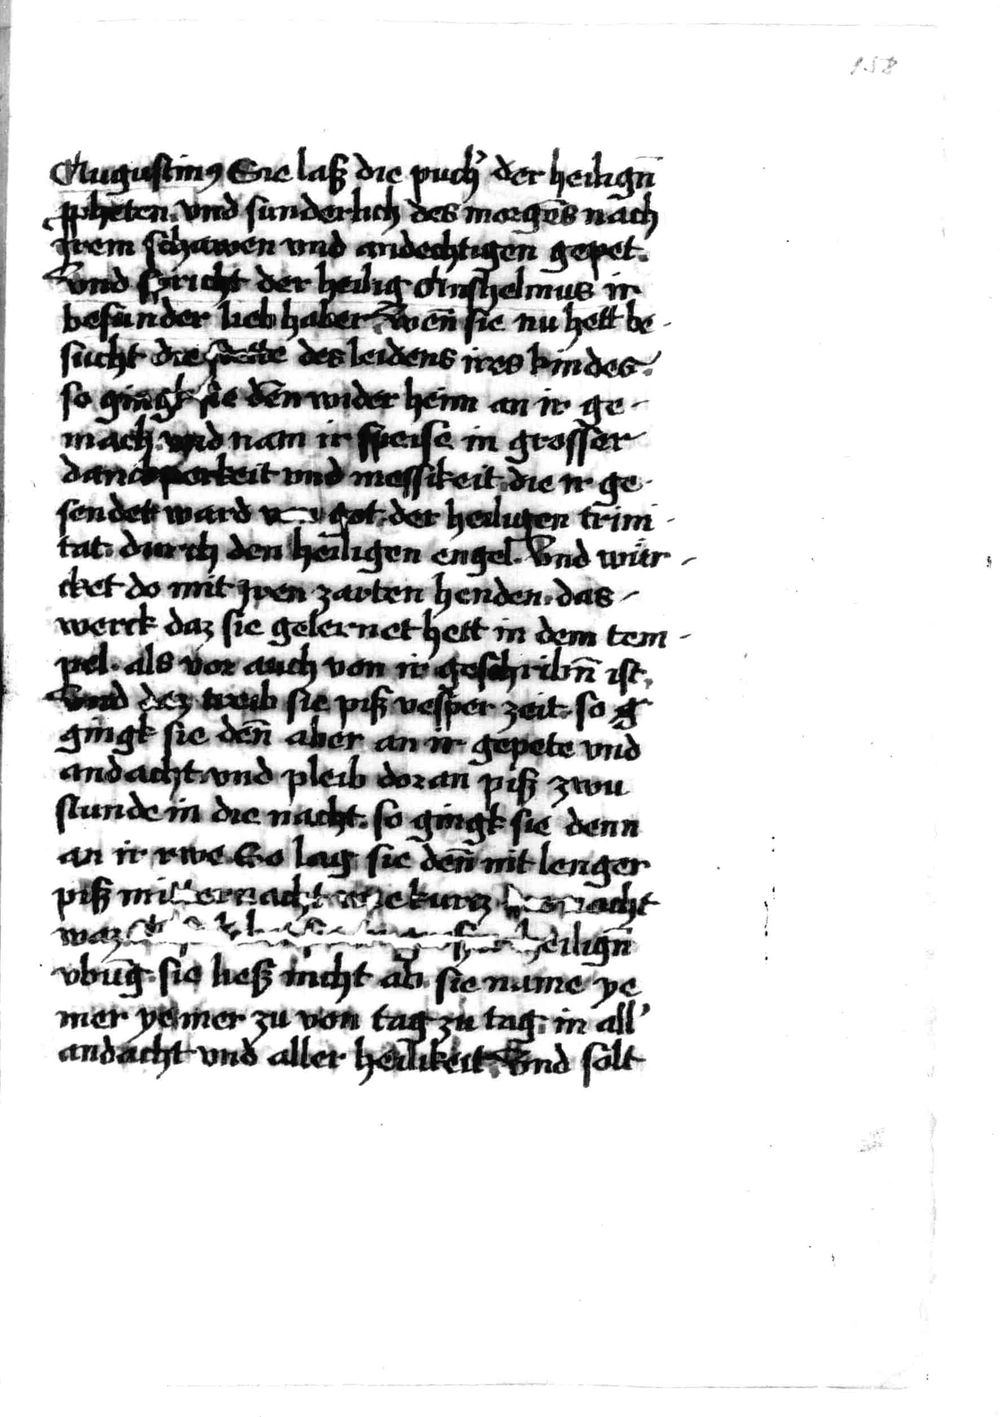 158
Augustinus Sie laß die puch' der heilign̄
ꝓpheten. vnd sunderlich des morgēs nach
Irem schawen vnd andechtigen gepet.
Vnd spricht der heilig Anshelmus ir
besunder lieb haber. Wen̄ sie nu hett be-
sucht die stete des leidens ires kindes.
so gingk sie den̄ wider heim an ir ge-
mach. vnd nam ir speise in grosser
danckperkeit vnd messikeit. die ir ge-
sendett ward von got. der heiligen trini-
tat. durch den heiligen engel. Vnd wür-
cket do mit Iren zarten henden. das
werck daz sie gelernet hett in dem tem-
pel. als vor auch von ir geschribn̄ ist.
Vnd dez treib sie piß vesper zeit. so g
gingk sie den̄ aber an ir gepete vnd
andacht. vnd pleib doran piß zwu
stunde in die nacht. so gingk sie denn
an ir rwe. So lag sie den̄ nit lenger
piß mitternacht wie kurcz nacht
waz heilign̄
vbūg. sie ließ nicht ab. sie name ye
mer ye mer zu von tag zu tag. in all'
andacht vnd aller heilikeit. Vnd solt